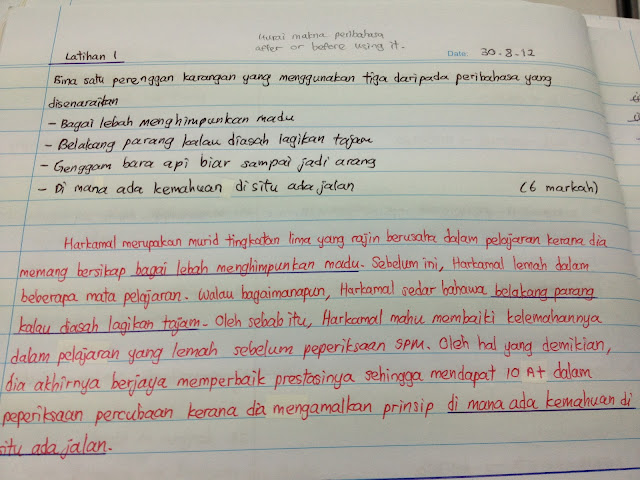 Hurai makna peribahasa
after or before using it.
Latihan 1
Date: 30.8.12
Bina satu perenggan karangan yang menggunakan tiga daripada peribahasa yang
disenaraikan
- Bagai lebah menghimpunkan madu
- Belakang parang kalau diasah lagikan tajam
- Genggam bara api biar sampai jadi arang
- Di mana ada kemahuan di situ ada jalan (6 markah)
Harkamal merupakan murid tingkatan lima yang rajin berusaha dalam pelajaran kerana dia
memang bersikap bagai lebah menghimpunkan madu. Sebelum ini, Harkamal lemah dalam
beberapa mata pelajaran. Walau bagaimanapun, Harkamal sedar bahawa belakang parang
kalau diasah lagikan tajam. Oleh sebab itu, Harkamal mahu membaiki kelemahannya
dalam pelajaran yang lemah sebelum peperiksaan SPM. Oleh hal yang demikian,
dia akhirnya berjaya memperbaik prestasinya sehingga mendapat 10 A+ dalam
peperiksaan percubaan kerana dia mengamalkan prinsip di mana ada kemahuan di
situ ada jalan.